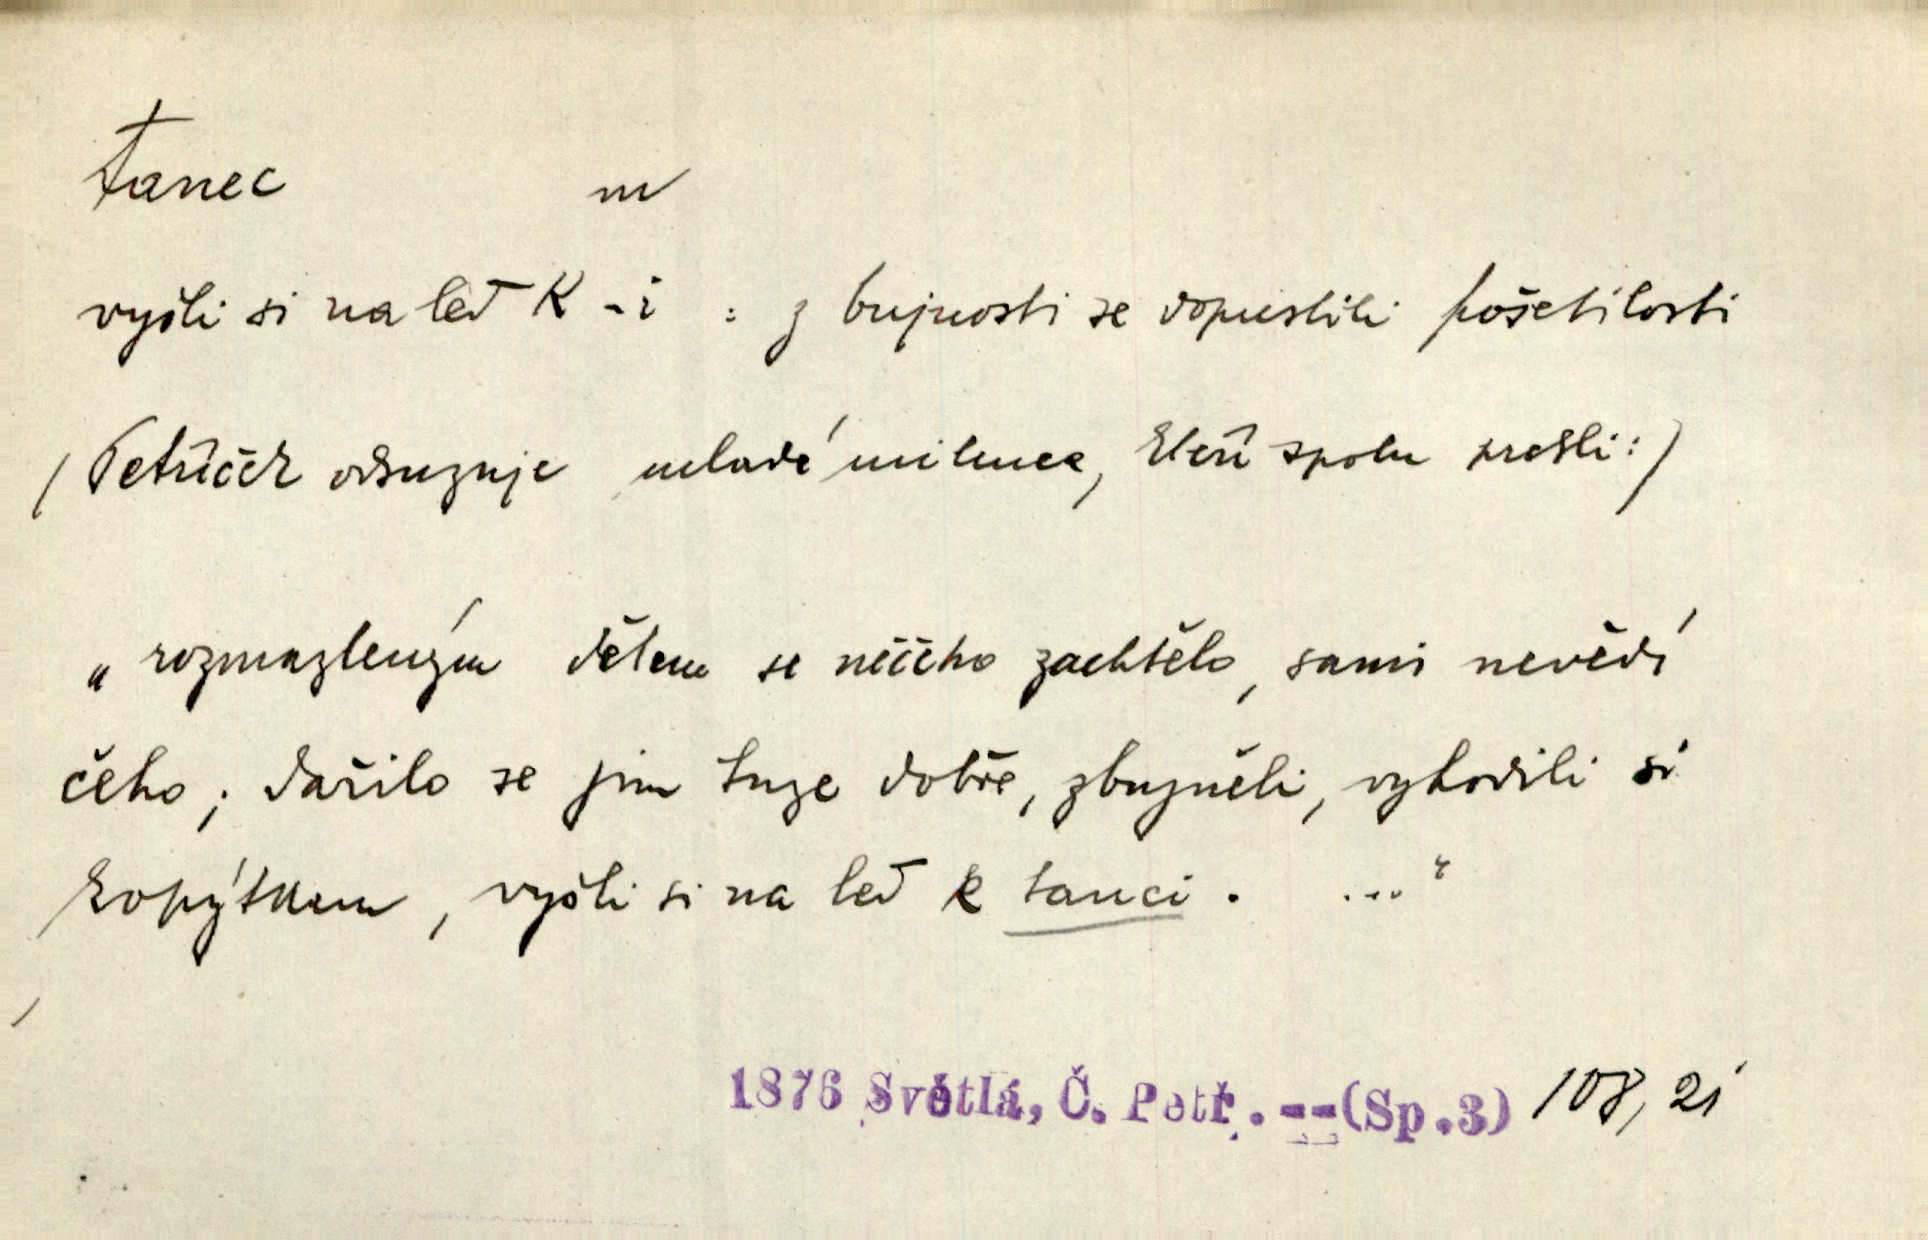 tanec m
vyšli si na leď k -i : z bujnosti se dopustili pošetilosti
(Petříček odsuzuje mladé milence, kteří spolu prchli:)
„rozmazleným dětem se něčeho zachtělo, sami nevědí
čeho; dařilo se jim tuze dobře, zbujněli, vyhodili si
kopýtkem, vyšli si na leď k tanci. ..."
1876 Světlá, Č. Petř. --(Sp.3) 108, 21